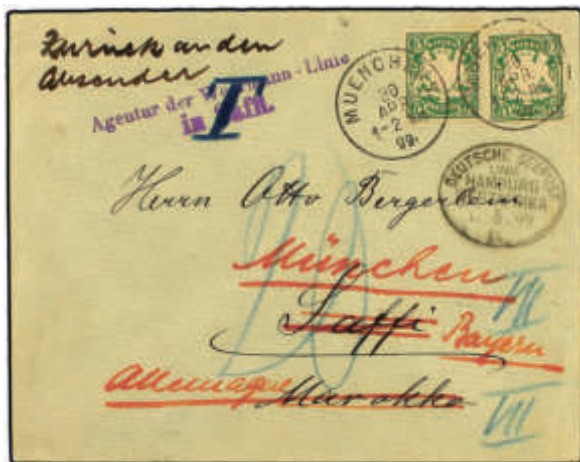 Zurück an den
Absender
Agentur der Woermann-Linie
in Saffi.
T
MUENCHEN
20
APR
1-2
99.
DEUTSCHE SEEPOST
LINIE
HAMBURG
Herrn Otto
München
VII
Saffi Bayern
20
Allemagne Marokko
VII